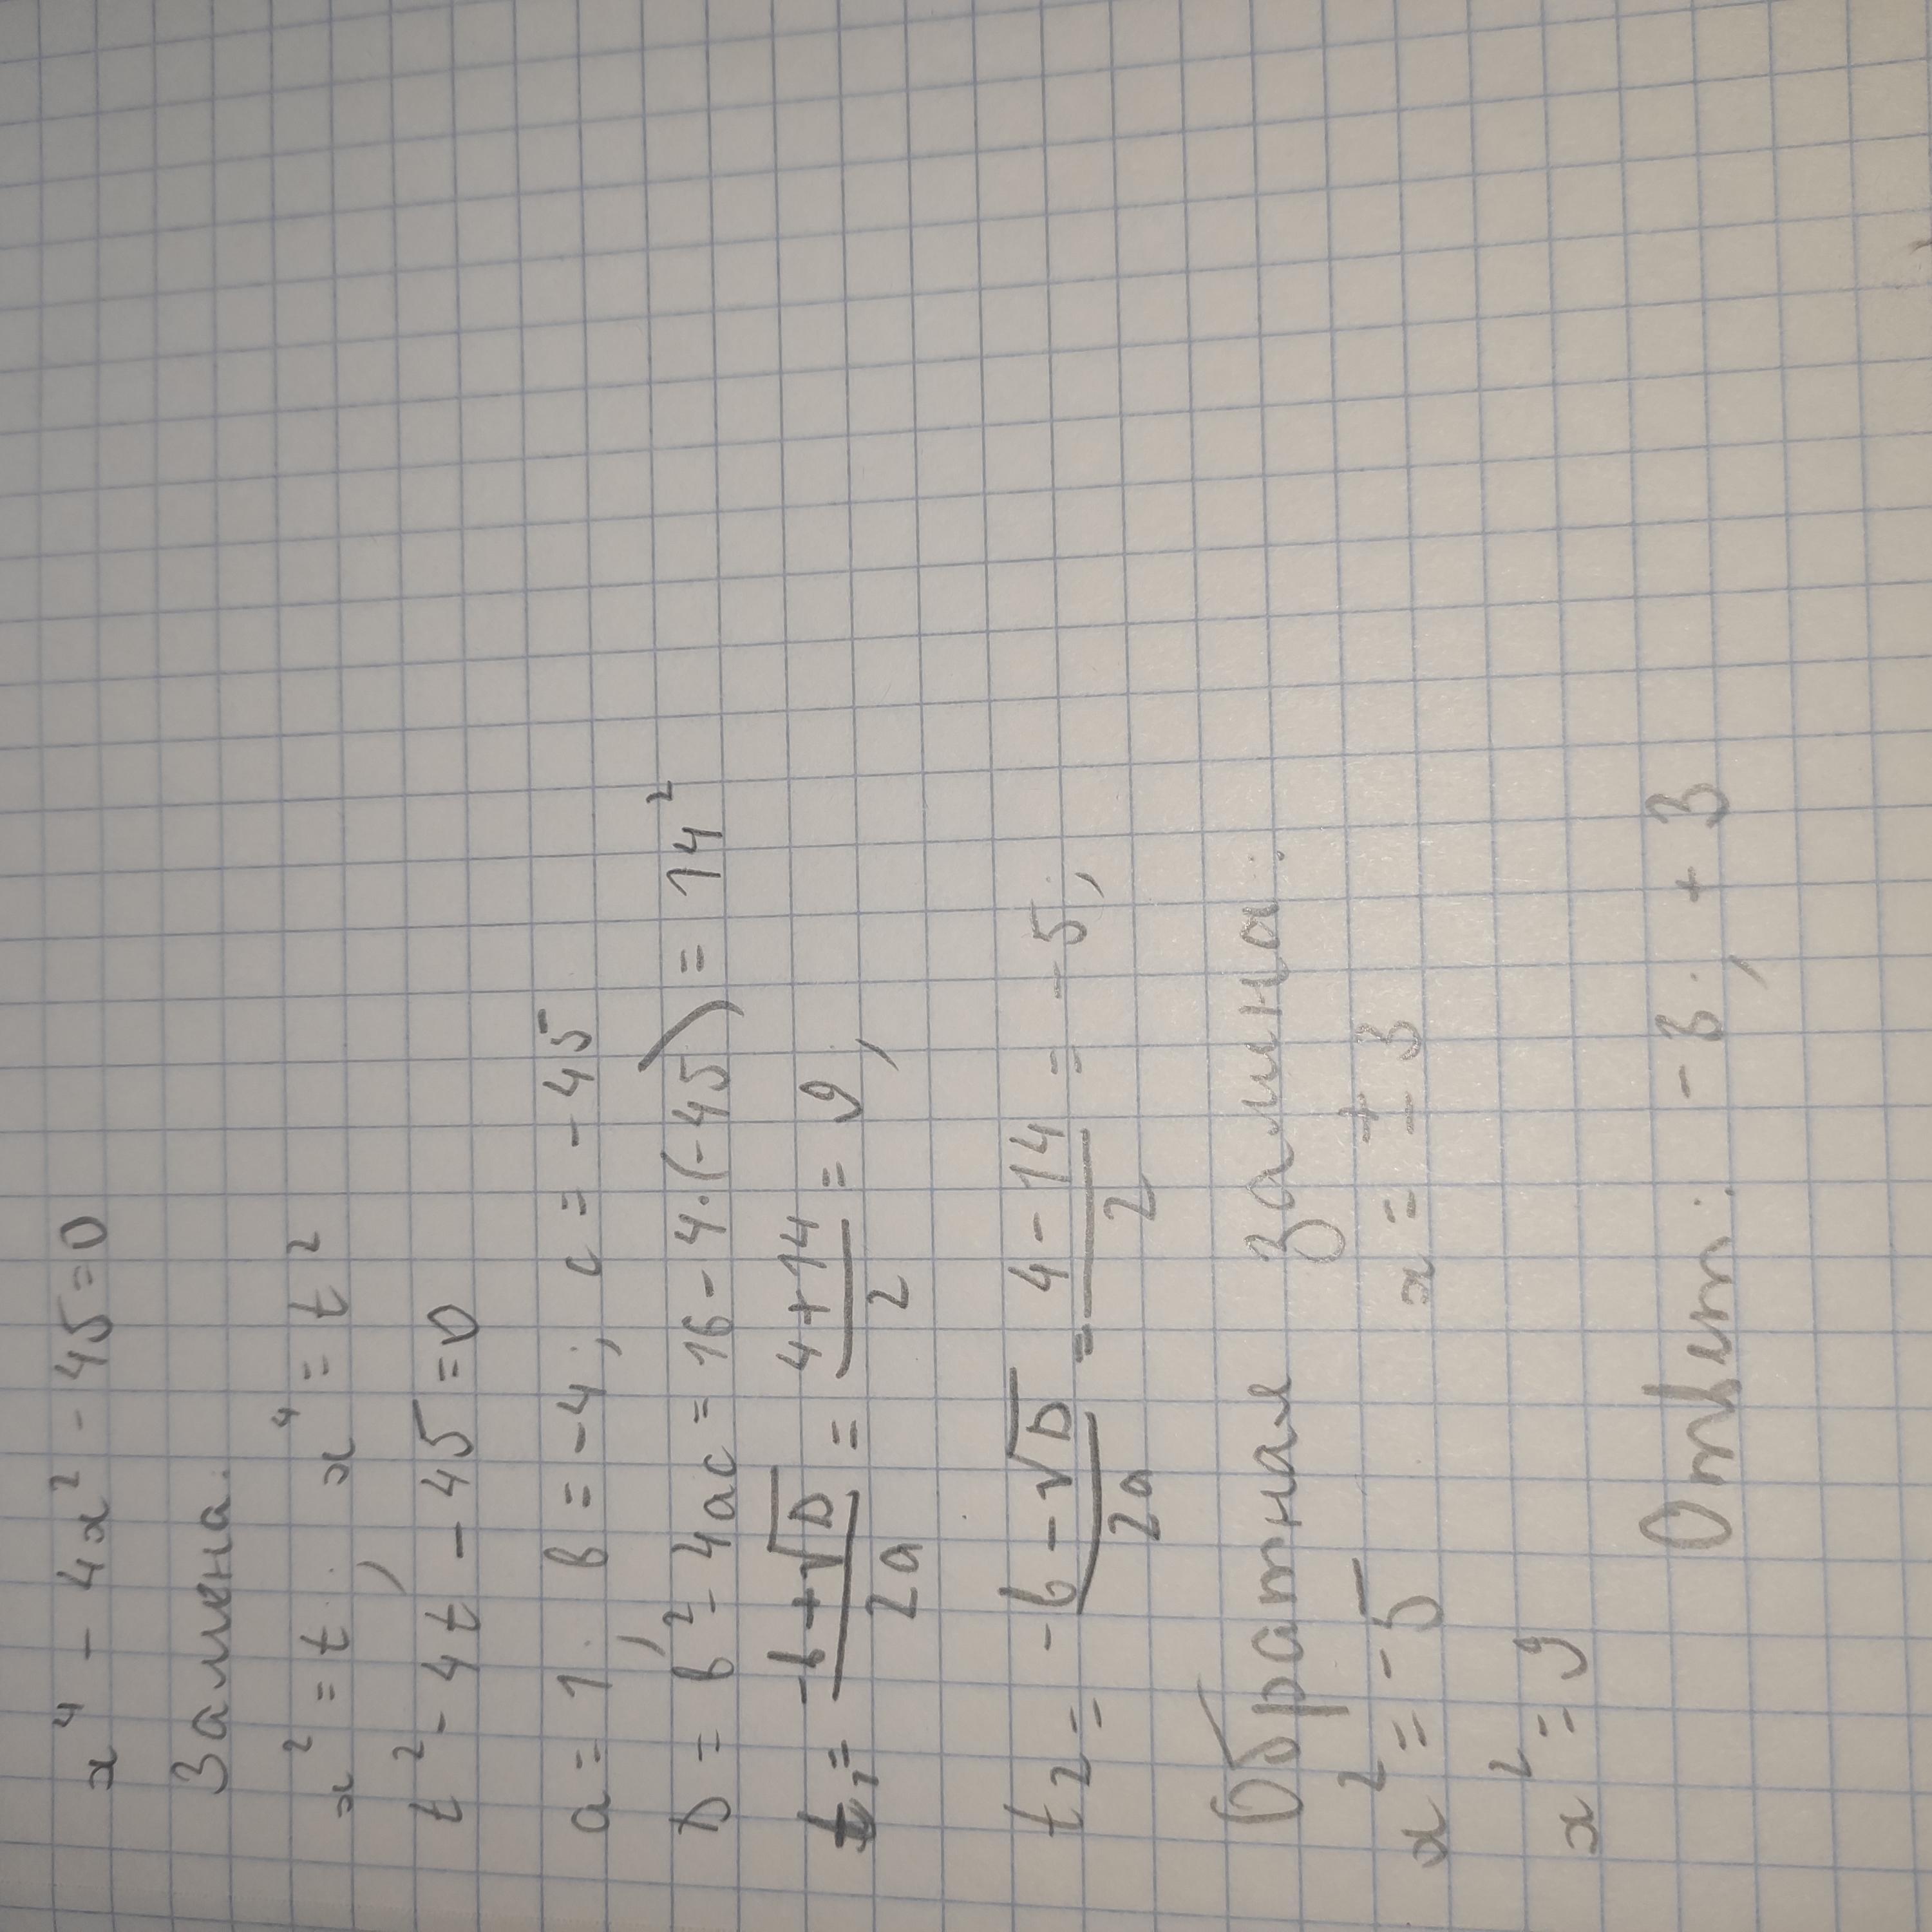 x⁴ - 4x² - 45 = 0
Замена:
x² = t; x⁴ = t²
t² - 4t - 45 = 0
a = 1; b = -4; c = -45
D = b² - 4ac = 16 - 4·(-45) = 14²
t₁ = (-b + √D)/2a = (4 + 14)/2 = 9;
t₂ = (-b - √D)/2a = (4 - 14)/2 = -5;
Обратная замина:
x² = -5 x = ± 3
x² = 9
Ответ: -3; +3